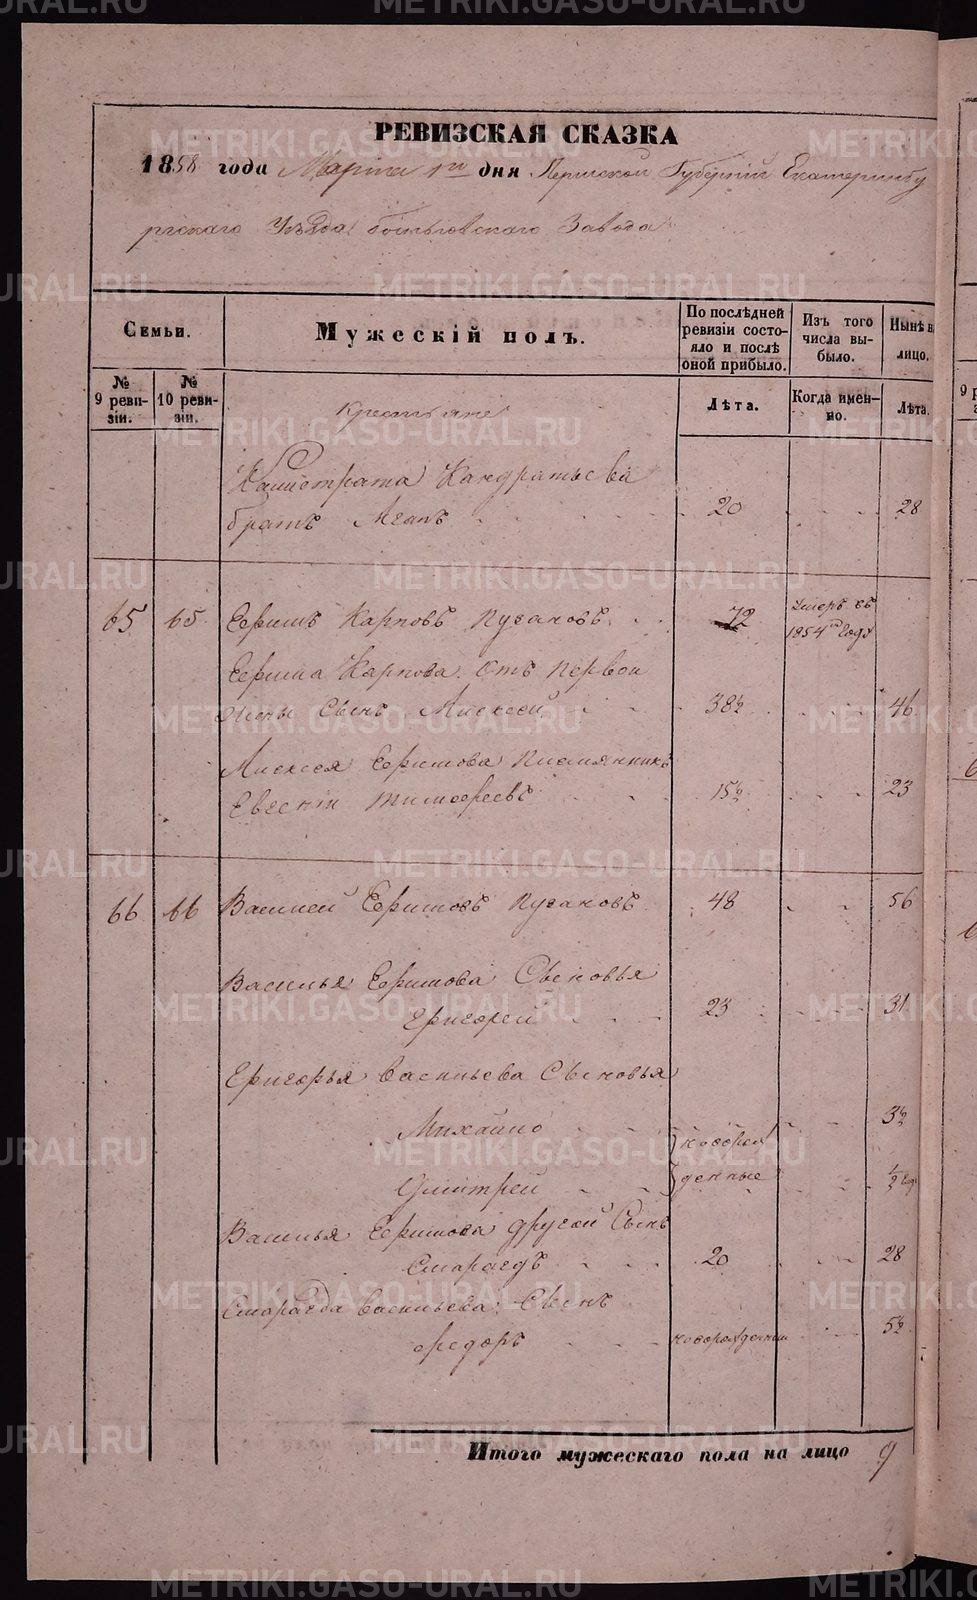 РЕВИЗСКАЯ СКАЗКА
1858 года Марта 1го дня Пермской Губернии Екатеринбу
ргскаго Уѣзда Завода
Семьи.
Мужескій полъ.
По послѣдней ревизіи состояло и послѣ оной прибыло.
Изъ того числа выбыло.
Нынѣ на лицо.
№ 9 ревизіи.
№ 10 ревизіи.
Крестьяне
Лѣта.
Когда именно.
Лѣта.
Калистрата Кандратьева
братъ Агапъ 20 28
65 65 Ефимъ Карповъ Пугановъ 72 Умеръ въ 1854мъ Году
Ефима Карпова отъ первой
жены Сынъ Алексей 38½ 46
Алексея Ефимова Племянникъ
Евгений Тимофеевъ 15½ 23
66 66 Василей Ефимовъ Пугановъ 48 56
Василья Ефимова Сыновья
Григорей 23 31
Григорья Васильева Сыновья
Михайло новорожденные 3½
Дмитрей ½ год
Василья Ефимова другой Сынъ
Смарагдъ 20 28
Смарагда Васильева Сынъ
Федоръ новорожденный 5½
Итого мужескаго пола на лицо 9
METRIKI.GASO-URAL.RU